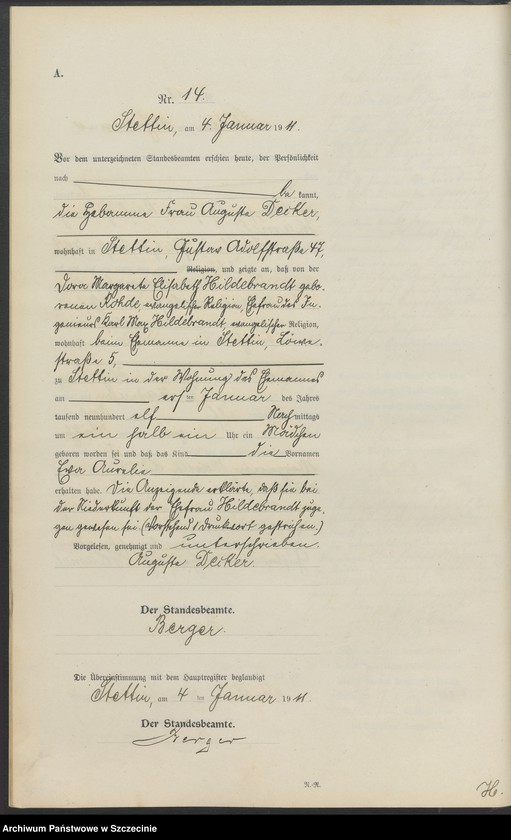 A.
Nr. 14.
Stettin, am 4. Januar 1911.
Vor dem unterzeichneten Standesbeamten erschien heute, der Persönlichkeit
nach be kannt,
die Hebamme Frau Auguste Decker,
wohnhaft in Stettin, Gustav Adolfstraße 47,
Religion, und zeigte an, daß von der
Dora Margarete Elisabeth Hildebrandt gebo-
renen Rohde, evangelischer Religion, Ehefrau des In-
genieurs Karl Max Hildebrandt, evangelischer Religion,
wohnhaft beim Ehemanne in Stettin, Löwe-
straße 5,
zu Stettin in der Wohnung des Ehemannes
am ersten Januar des Jahres
tausend neunhundert elf Nachmittags
um ein halb ein Uhr ein Mädchen
geboren worden sei und daß das Kind die Vornamen
Eva Aurelie
erhalten habe. Die Anzeigende erklärte, daß sie bei
der Niederkunft der Ehefrau Hildebrandt zuge-
gen gewesen sei. (Vorstehend 1 Druckwort gestrichen.)
Vorgelesen, genehmigt und unterschrieben.
Auguste Decker.
Der Standesbeamte.
Berger.
Die Übereinstimmung mit dem Hauptregister beglaubigt
Stettin, am 4ten Januar 1911.
Der Standesbeamte.
Berger
N.-R.
H.
Archiwum Państwowe w Szczecinie